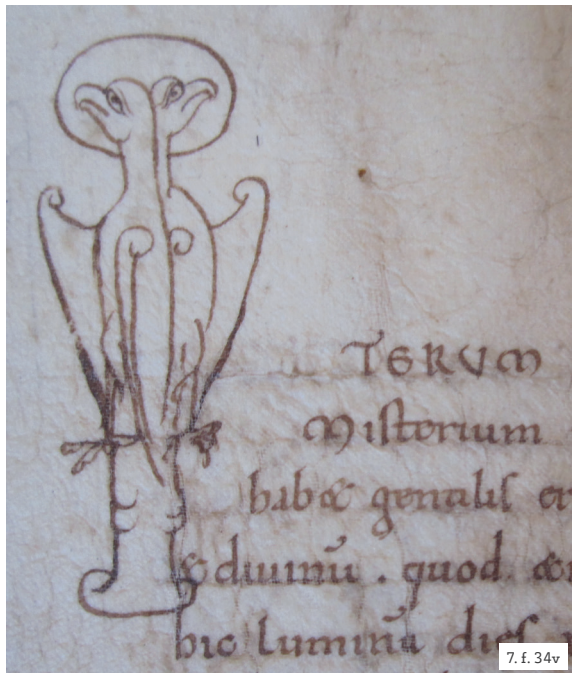 TERUM
Misterium
habæ gentilis er
& diuinū . quod æ
hic luminū dies
7. f. 34v